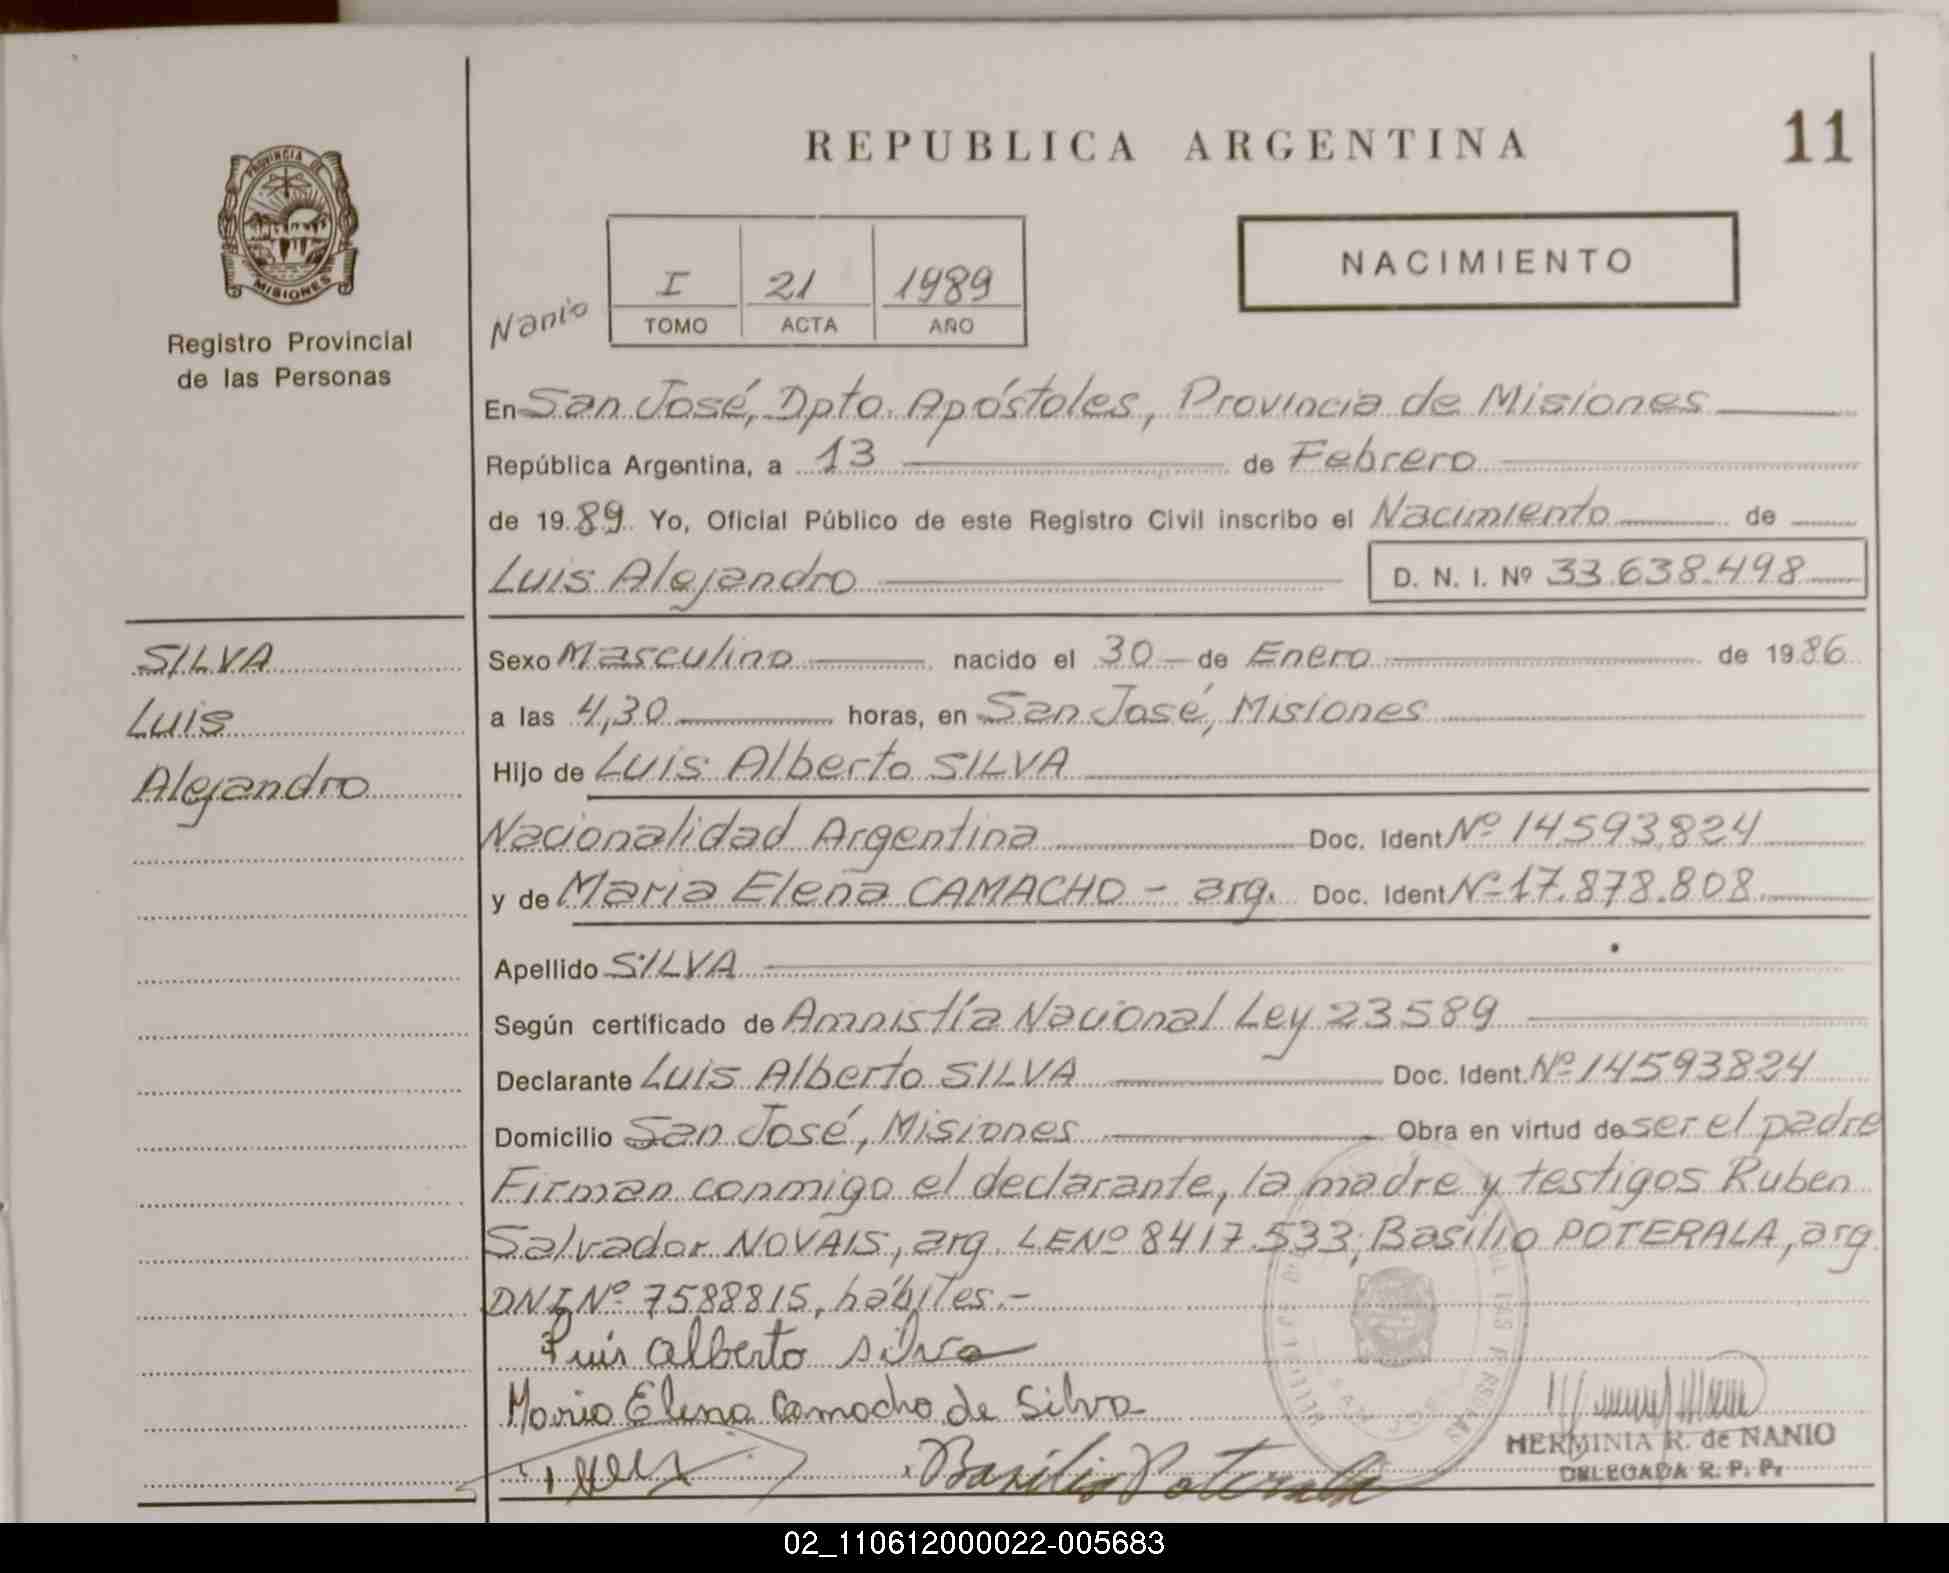 REPUBLICA ARGENTINA
11
PROVINCIA DE
MISIONES
Registro Provincial
de las Personas
Nanio
I 21 1989
TOMO ACTA AÑO
NACIMIENTO
En San José, Dpto. Apóstoles, Provincia de Misiones
República Argentina, a 13 de Febrero
de 1989. Yo, Oficial Público de este Registro Civil inscribo el Nacimiento de
Luis Alejandro D. N. I. Nº 33.638.498
SILVA
Luis
Alejandro
Sexo Masculino nacido el 30 de Enero de 1986
a las 4,30 horas, en San José, Misiones
Hijo de Luis Alberto SILVA
Nacionalidad Argentina Doc. Ident Nº 14593.824
y de Maria Elena CAMACHO - arg. Doc. Ident Nº 17.878.808
Apellido SILVA
Según certificado de Amnistía Nacional Ley 23589
Declarante Luis Alberto SILVA Doc. Ident. Nº 14593824
Domicilio San José, Misiones Obra en virtud de ser el padre
Firman conmigo el declarante, la madre y testigos Ruben
Salvador NOVAIS, arg. LENº 8417533; Basilio POTERALA, arg.
DNI Nº 7588815, hábiles.-
Luis Alberto Silva
Maria Elena Camacho de Silva
Basilio Poterala
HERMINIA R. de NANIO
DELEGADA R. P. P.
02_110612000022-005683